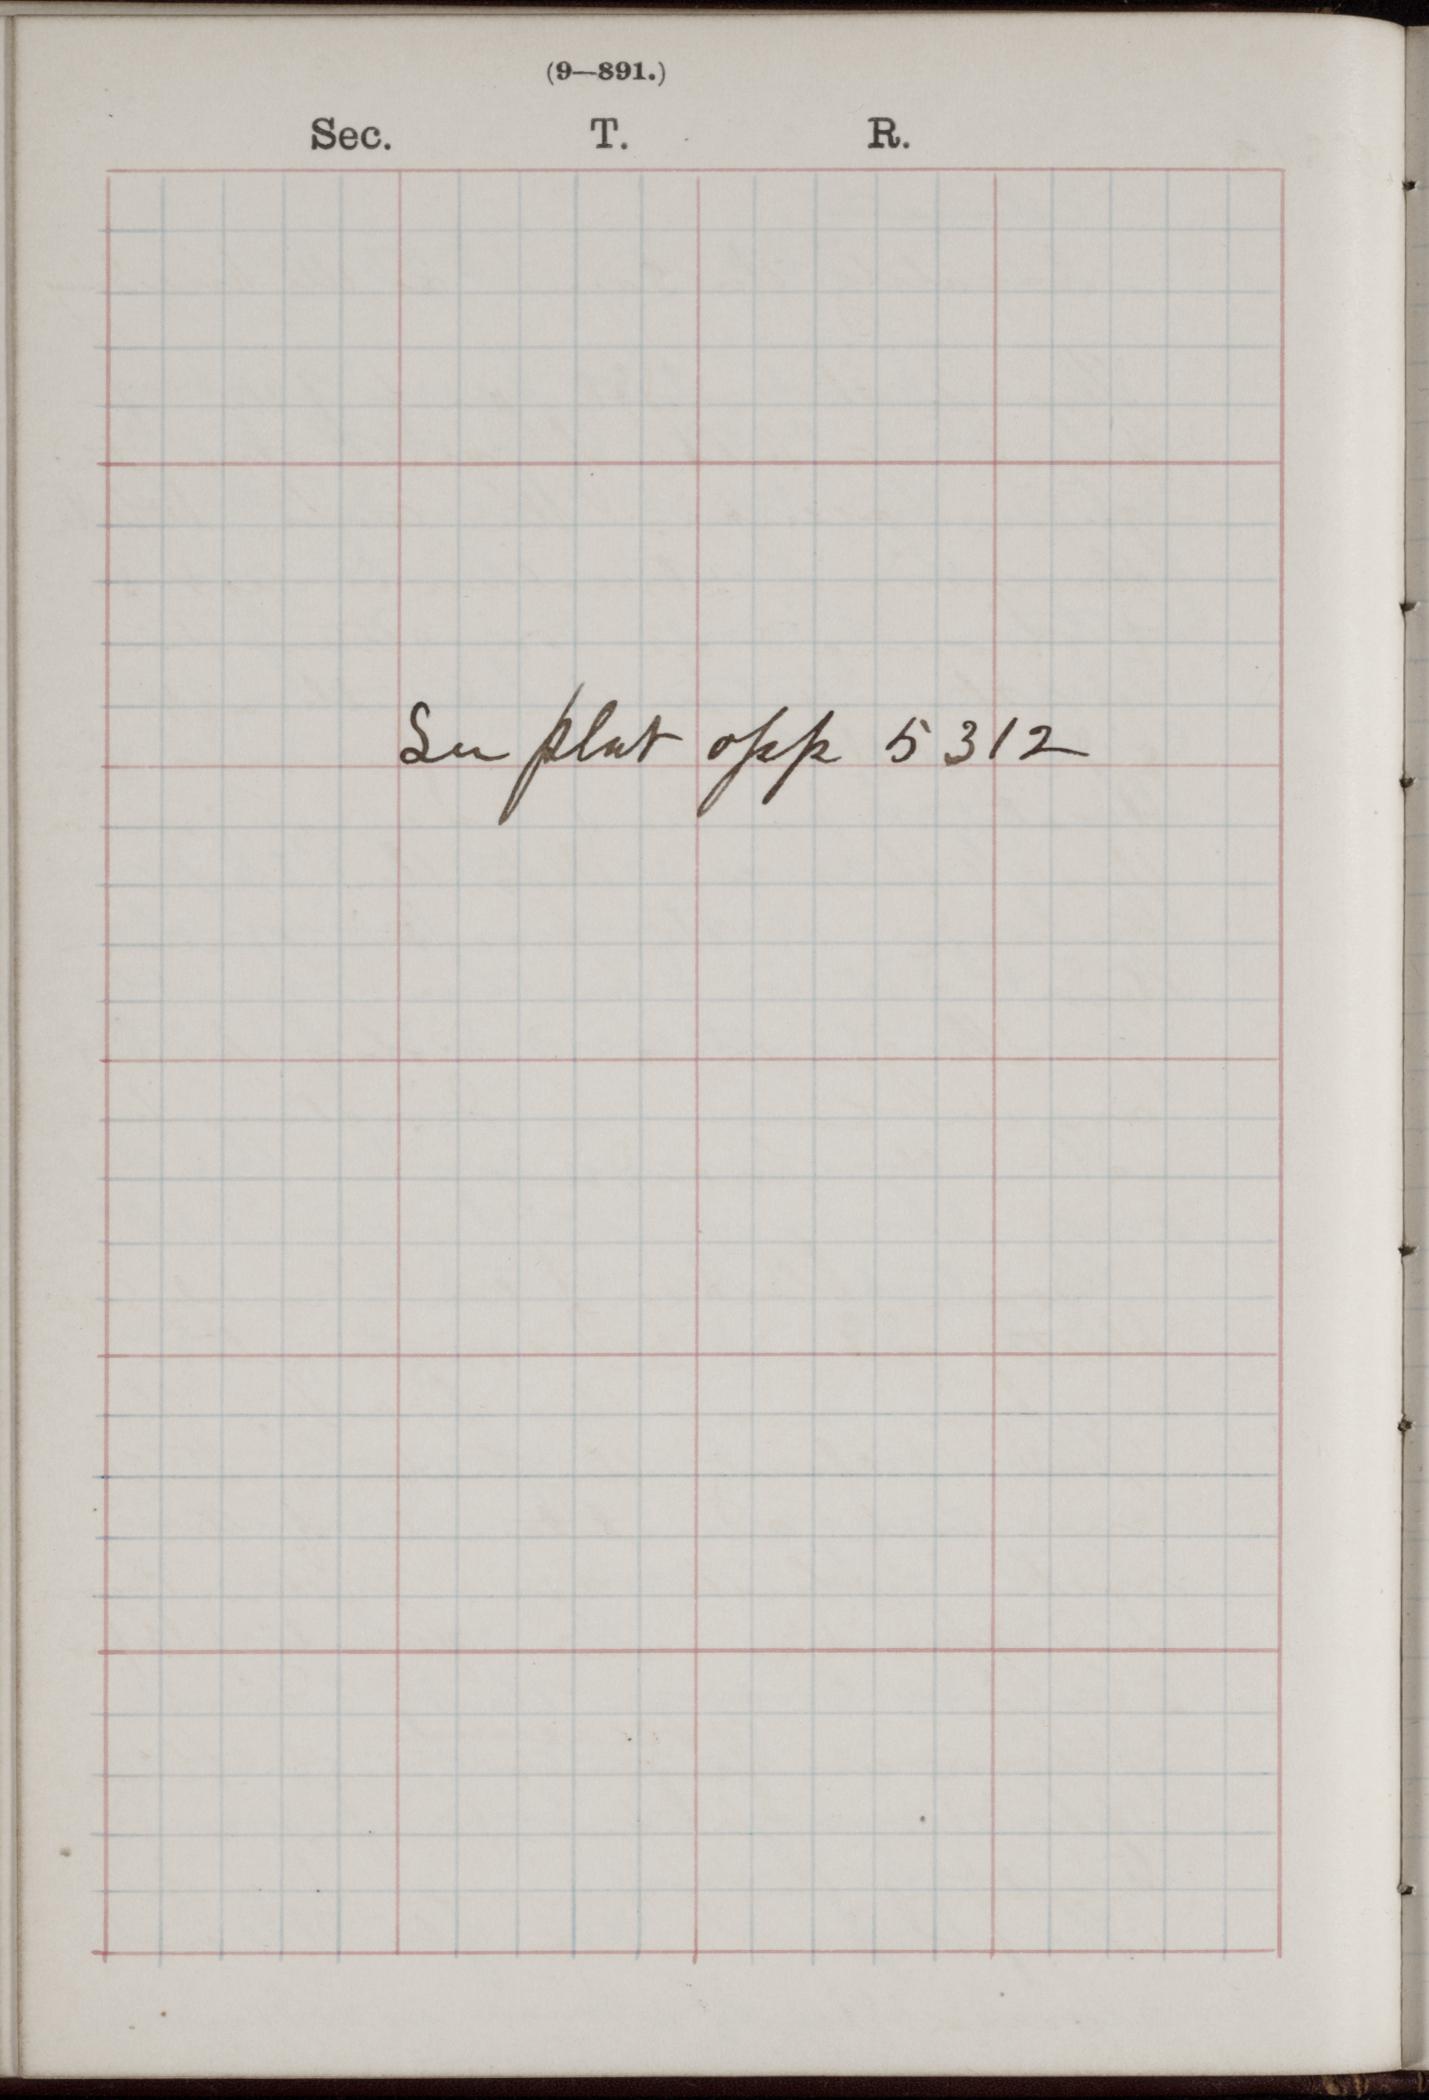 (9—891.)
Sec. T. R.
See plat opp 5312